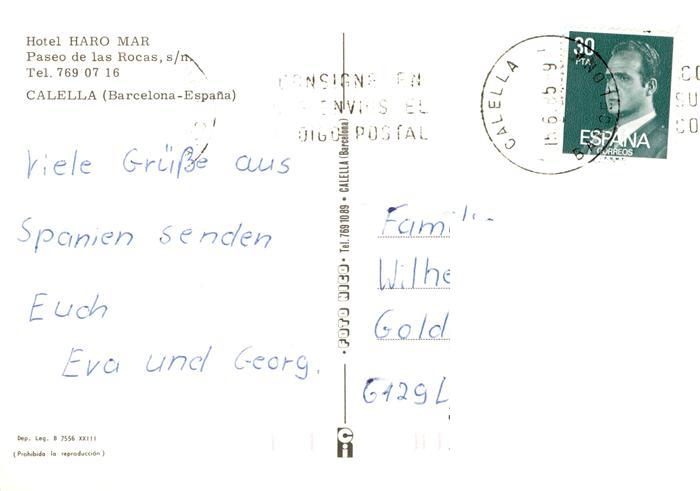 Hotel HARO MAR
Paseo de las Rocas, s/n.
Tel. 769 07 16
CALELLA (Barcelona-España)
CONSIGNE EN
ENVIOS EL
DIGO POSTAL
CALELLA
30
PTA
ESPAÑA
CORREOS
CO
SU
CO
Viele Grüße aus
Spanien senden
Euch
Eva und Georg.
FOTO RICO • Tel. 769 10 89 • CALELLA (Barcelona)
Famili
Wilhe
Gold
6129 L
Dep. Leg. B 7556 XXIII
(Prohibida la reproducción)